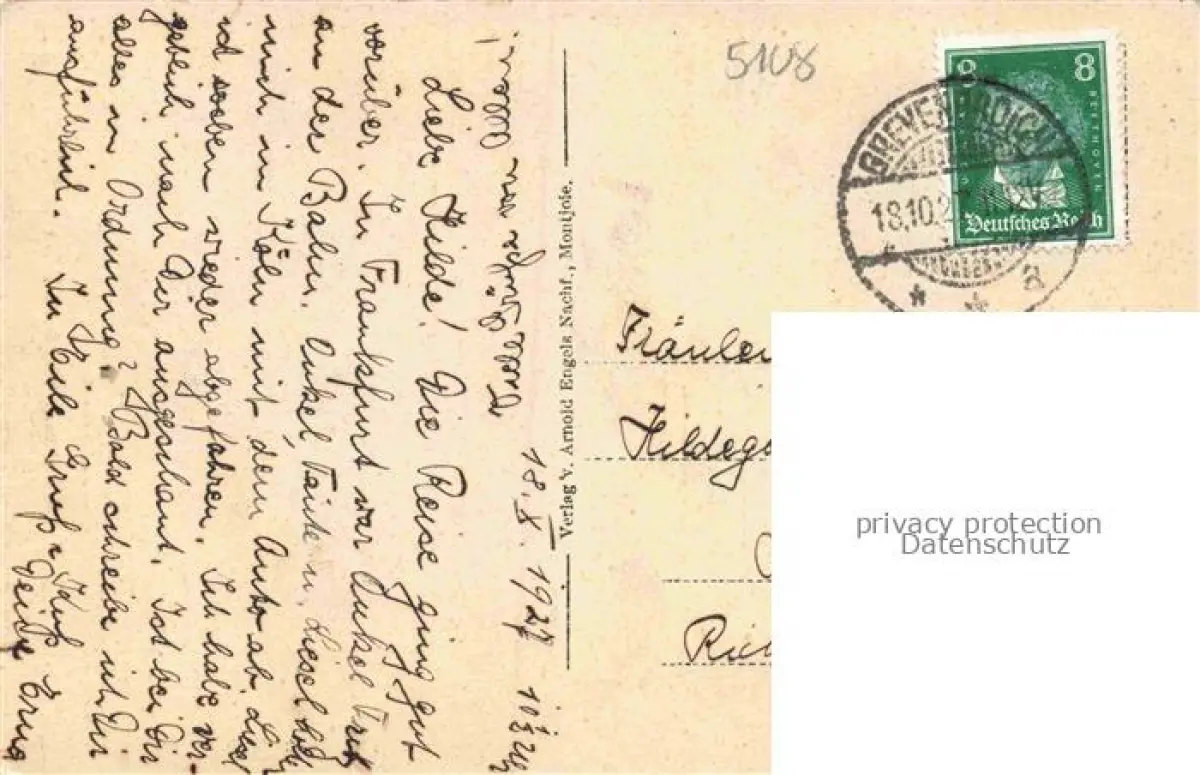 18. X. 1927 10½ Uhr
Liebe Hilde! Die Reise ging gut
vorüber. In Frankfurt war Onkel Fritz
an der Bahn. Onkel, Tante u. Liesel
mich in Köln mit dem Auto ab.
ich soeben wieder abgefahren. Ich habe ver-
geblich nach Dir ausgeschaut. Ist bei Dir
alles in Ordnung? Bald schreibe ich Dir
ausführlich. In Eile Gruß u. Kuß Deine Erna
Verlag v. Arnold Engels Nachf., Montjoie.
5108
8 8
BEETHOVEN
Deutsches Reich
GREVENBROICH
18.10.2
* * a
Fräulein
Hildeg
privacy protection
Datenschutz